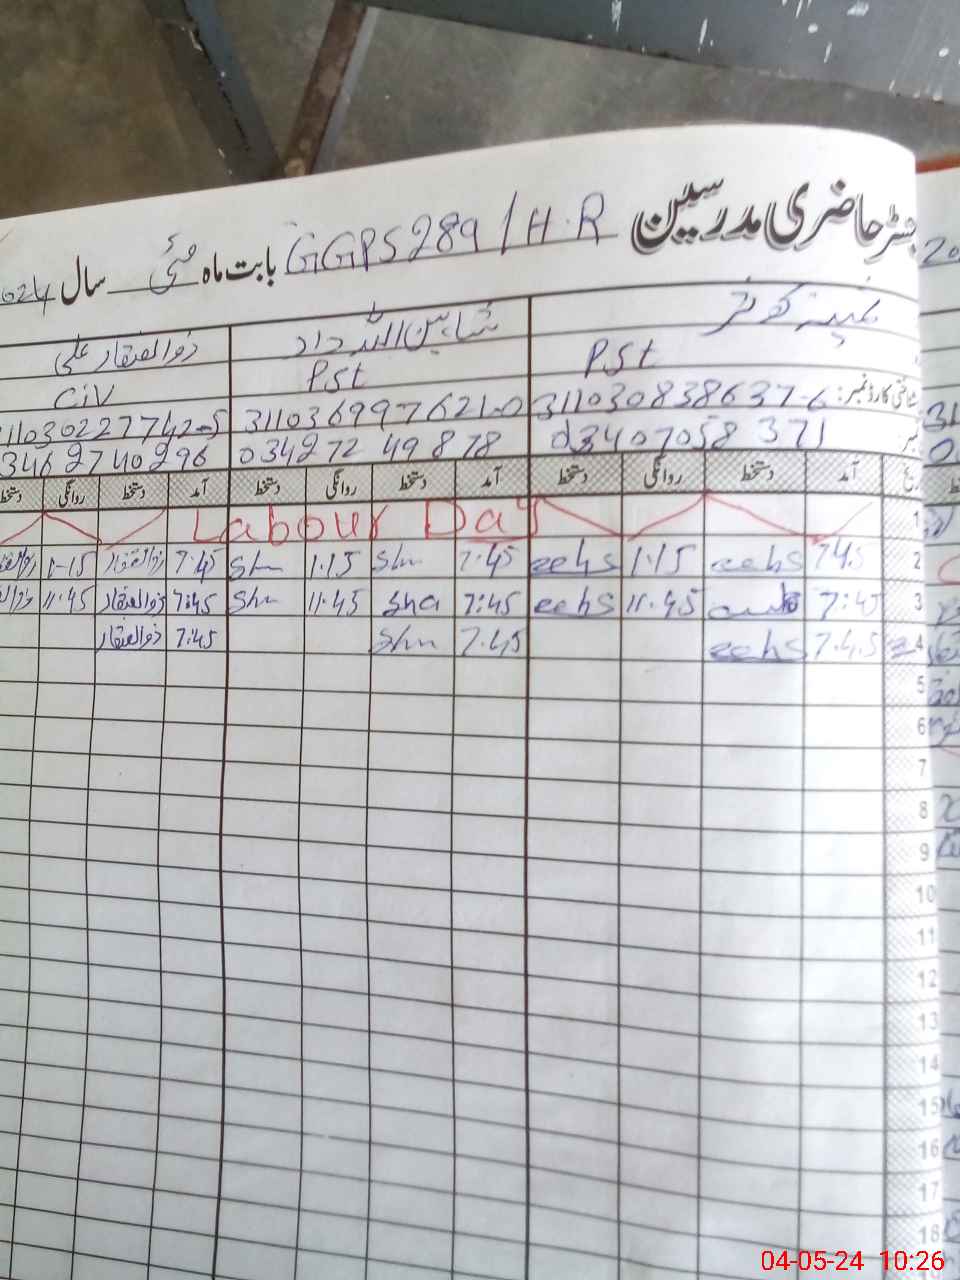 رجسٹر حاضری مدرسین GGPS 289/H.R بابت ماہ مئی سال 2024
شاہین اللہ داد ذوالفقار علی
PSt PSt C-IV
شناختی کارڈ نمبر: 311030838637-6 311036997621-0 1103022774 2-5
نمبر: 03407058371 03427249878 34627 40296
آمد دستخط روانگی دستخط آمد دستخط روانگی دستخط آمد دستخط روانگی دستخط
1 Labour Day
2 7:45 zehs 1:15 zehs 7:45 Shn 1:15 Shn 7:45 ذوالفقار 1-15
3 7:45 11.45 zehs 7:45 Sha 11.45 Shn 7:45 ذوالفقار 11.45
4 7.4.5 zehs 7.45 Shn 7:45 ذوالفقار
5
6
7
8
9
10
11
12
13
14
15
16
17
18
04-05-24 10:26